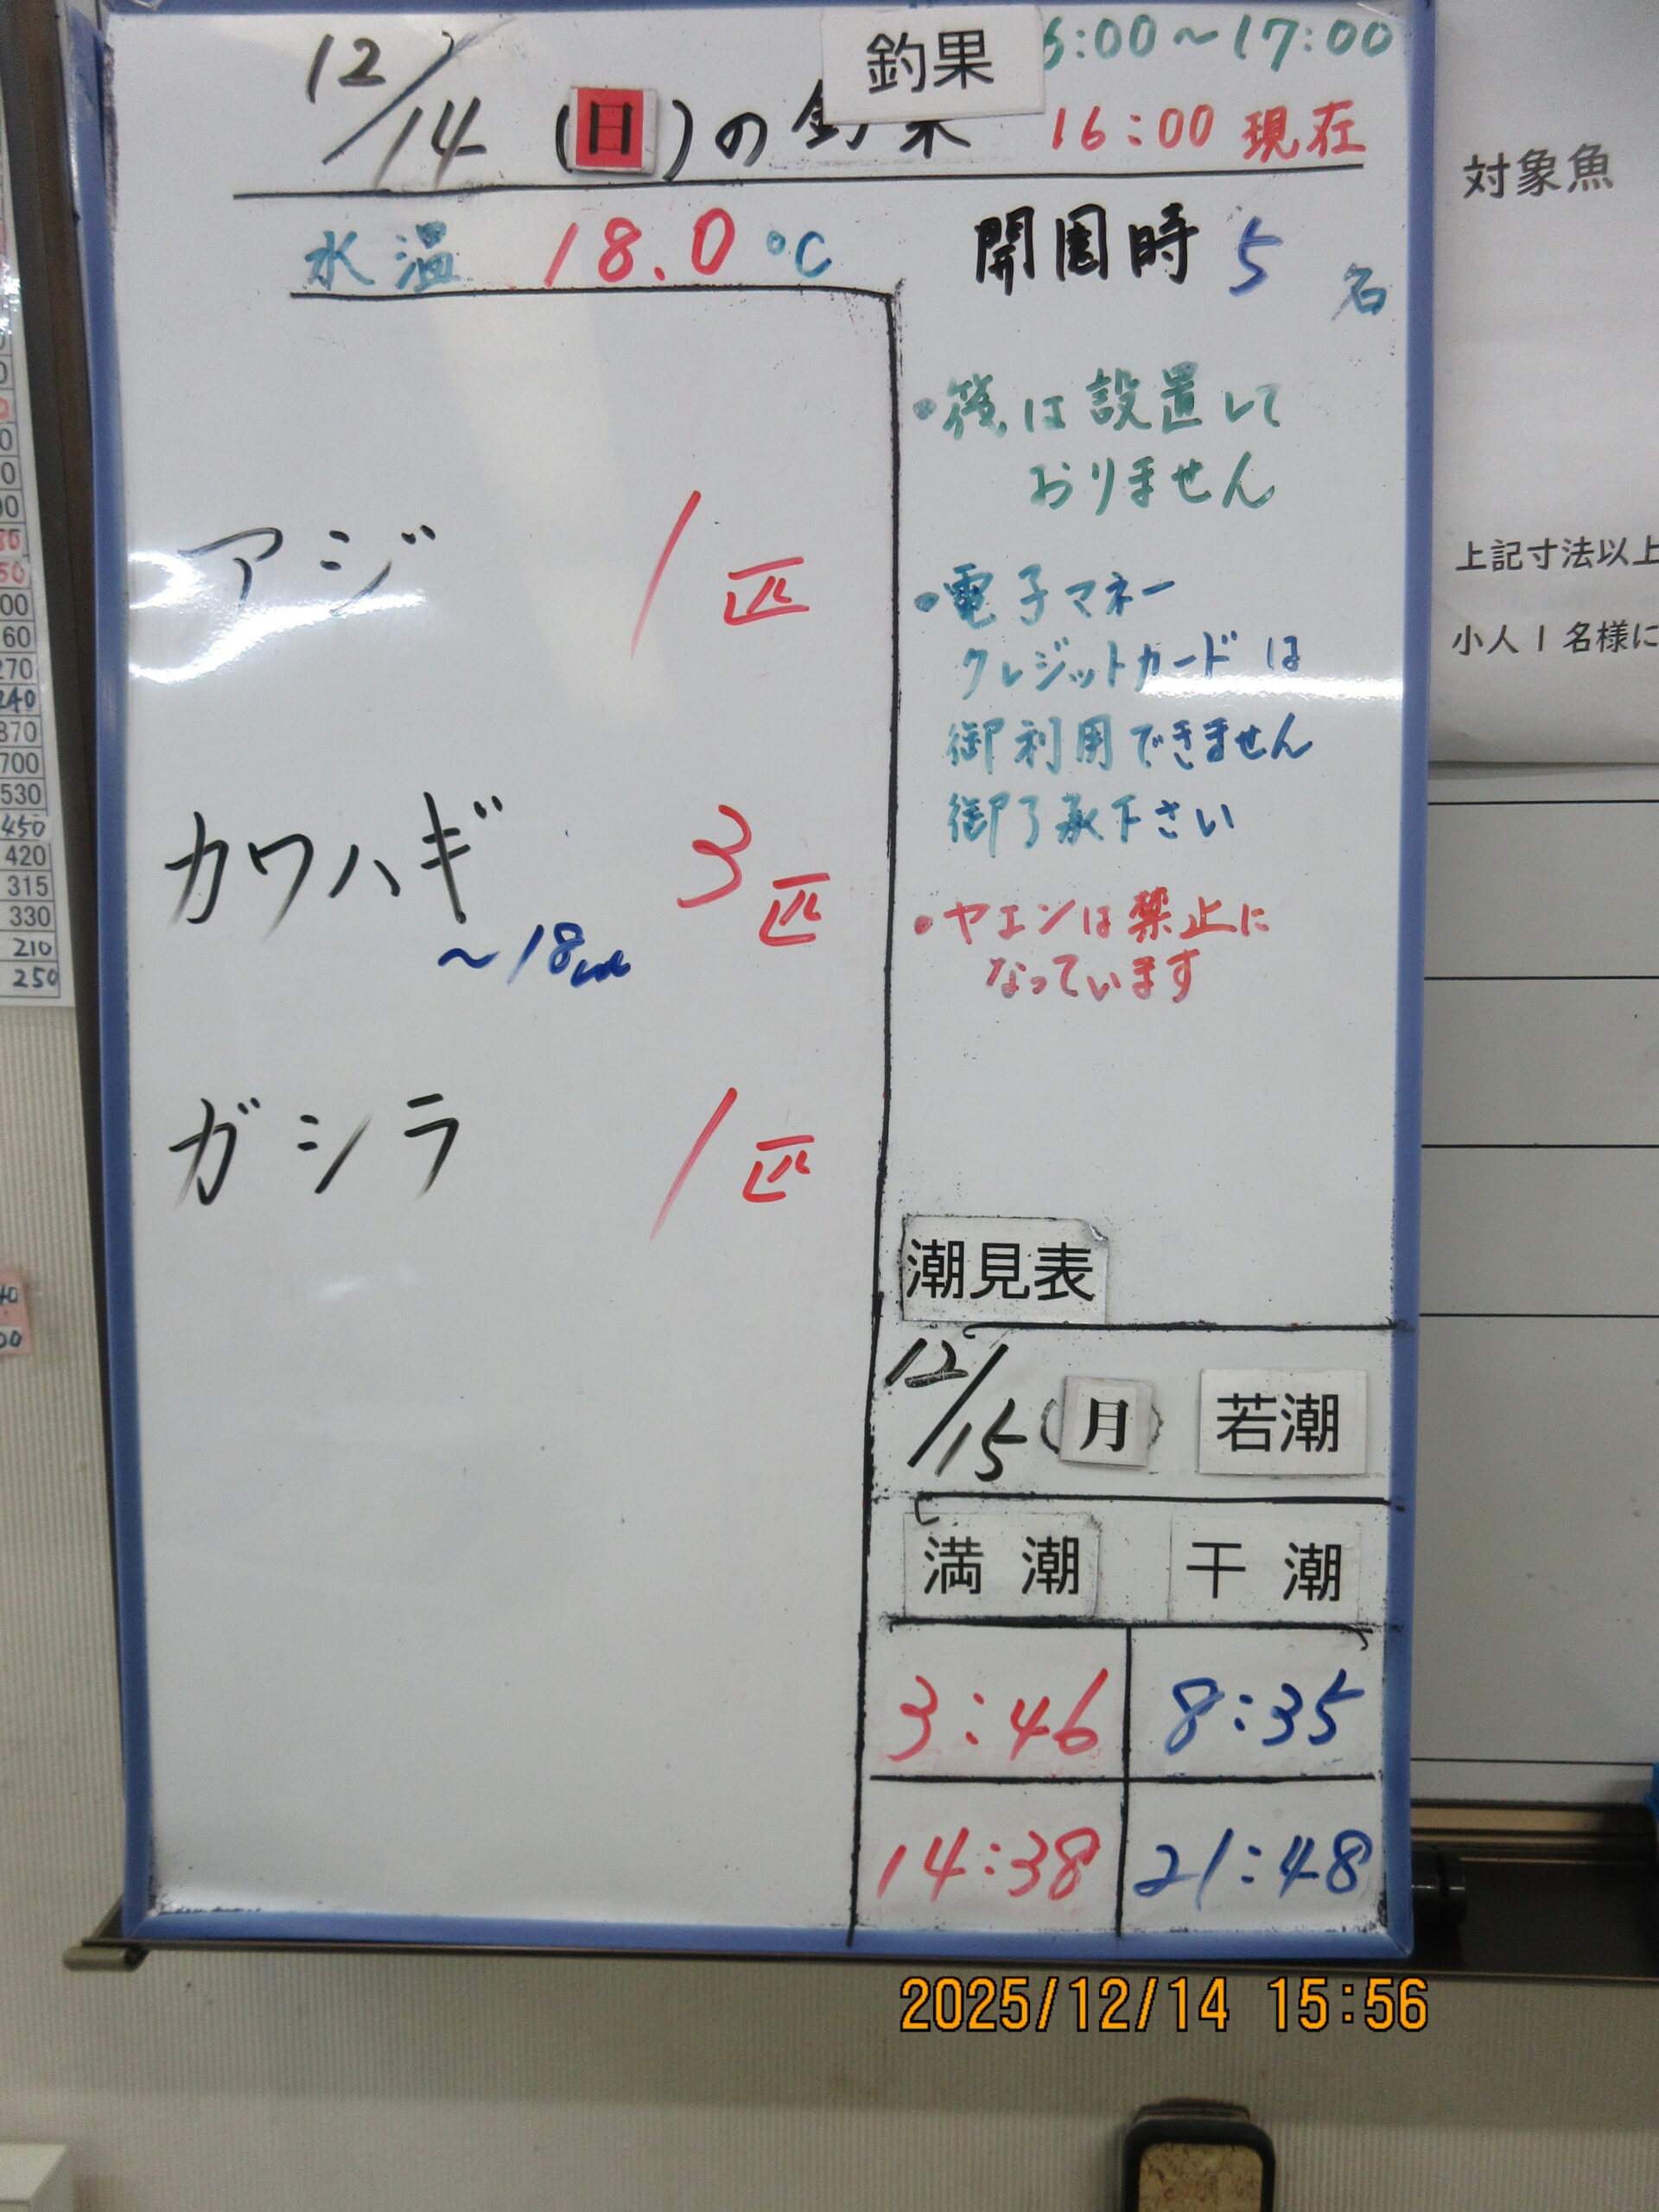 釣果
:00～17:00
12/14 (日)の釣果 16:00 現在
水温 18.0 ℃
開園時 5 名
アジ 1 匹
カワハギ 3 匹
～18cm
ガシラ 1 匹
・筏は設置して
おりません
・電子マネー
クレジットカードは
御利用できません
御了承下さい
・ヤエンは禁止に
なっています
潮見表
12/15 (月) 若潮
満潮 干潮
3:46 8:35
14:38 21:48
対象魚
上記寸法以上
小人1名様に
270
240
870
700
530
450
420
315
330
210
250
2025/12/14 15:56